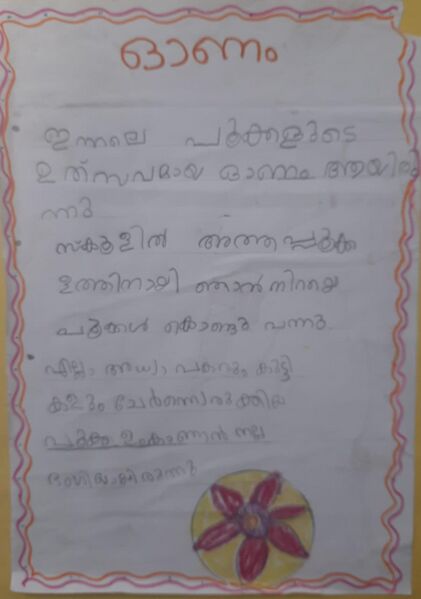 ഓണം
ഇന്നലെ പൂക്കളുടെ
ഉത്സവമായ ഓണം ആയിരു
ന്നു
സ്കൂളിൽ അത്തപ്പൂക്ക
ളത്തിനായി ഞാൻ നിറയെ
പൂക്കൾ കൊണ്ടു വന്നു.
എല്ലാ അധ്യാപകരും കുട്ടി
കളും ചേർന്നൊരുക്കിയ
പൂക്കളം കാണാൻ നല്ല
ഭംഗിയായിരുന്നു